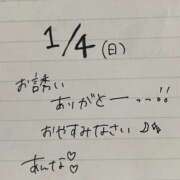 1/4(日)
お誘い
ありがとー...!!
おやすみなさい♪☆
あんな♡♡